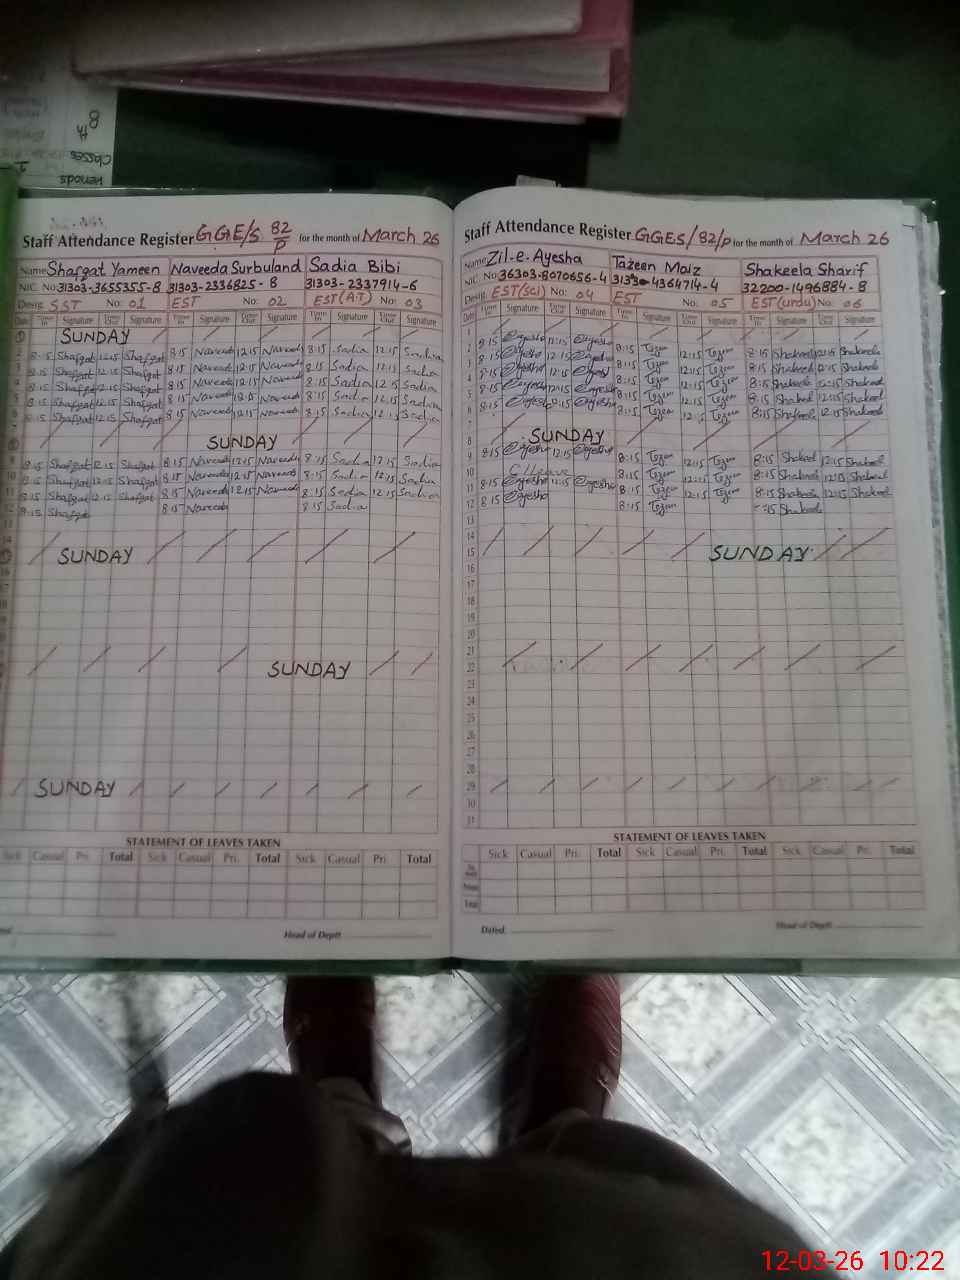 8th
Classes
Periods
Staff Attendance Register GGE/S 82/P for the month of March 26
Name Shafqat Yameen Naveeda Surbuland Sadia Bibi
NIC. No 31303-3655355-8 31303-2336825-8 31303-2337914-6
Desig. SST No: 01 EST No: 02 EST (A.T) No: 03
Date Time In Signature Time Out Signature Time In Signature Time Out Signature Time In Signature Time Out Signature
1 SUNDAY
2 8:15 Shafqat 12:15 Shafqat 8:15 Naveeda 12:15 Naveeda 8:15 Sadia 12:15 Sadia
3 8:15 Shafqat 12:15 Shafqat 8:15 Naveeda 12:15 Naveeda 8:15 Sadia 12:15 Sadia
4 8:15 Shafqat 12:15 Shafqat 8:15 Naveeda 12:15 Naveeda 8:15 Sadia 12:15 Sadia
5 8:15 Shafqat 12:15 Shafqat 8:15 Naveeda 12:15 Naveeda 8:15 Sadia 12:15 Sadia
6 8:15 Shafqat 12:15 Shafqat 8:15 Naveeda 12:15 Naveeda 8:15 Sadia 12:15 Sadia
8 SUNDAY
8:15 Shafqat 12:15 Shafqat 8:15 Naveeda 12:15 Naveeda 8:15 Sadia 12:15 Sadia
8:15 Shafqat 12:15 Shafqat 8:15 Naveeda 12:15 Naveeda 8:15 Sadia 12:15 Sadia
11 8:15 Shafqat 12:15 Shafqat 8:15 Naveeda 12:15 Naveeda 8:15 Sadia 12:15 Sadia
12 8:15 Shafqat 8:15 Naveeda 8:15 Sadia
14
15 SUNDAY
16
17
18
SUNDAY
SUNDAY
STATEMENT OF LEAVES TAKEN
Sick Casual Pri. Total Sick Casual Pri. Total Sick Casual Pri. Total
Head of Deptt
Staff Attendance Register GGES/82/P for the month of March 26
Name Zil-e-Ayesha Tazeen Moiz Shakeela Sharif
NIC. No 36303-8070656-4 31303-4364714-4 32200-1496884-8
Desig. EST(sci) No: 04 EST No: 05 EST(urdu) No: 06
Date Time In Signature Time Out Signature Time In Signature Time Out Signature Time In Signature Time Out Signature
1
2 8:15 Ayesha 12:15 Ayesha 8:15 Tazeen 12:15 Tazeen 8:15 Shakeela 12:15 Shakeela
3 8:15 Ayesha 12:15 Ayesha 8:15 Tazeen 12:15 Tazeen 8:15 Shakeela 12:15 Shakeela
4 8:15 Ayesha 12:15 Ayesha 8:15 Tazeen 12:15 Tazeen 8:15 Shakeela 12:15 Shakeela
5 8:15 Ayesha 12:15 Ayesha 8:15 Tazeen 12:15 Tazeen 8:15 Shakeela 12:15 Shakeela
6 8:15 Ayesha 12:15 Ayesha 8:15 Tazeen 12:15 Tazeen 8:15 Shakeela 12:15 Shakeela
7
8 SUNDAY
9 8:15 Ayesha 12:15 Ayesha 8:15 Tazeen 12:15 Tazeen 8:15 Shakeela 12:15 Shakeela
10 C/Leave 8:15 Tazeen 12:15 Tazeen 8:15 Shakeela 12:15 Shakeela
11 8:15 Ayesha 12:15 Ayesha 8:15 Tazeen 12:15 Tazeen 8:15 Shakeela 12:15 Shakeela
12 8:15 Ayesha 8:15 Tazeen :15 Shakeela
13
14
15 SUNDAY
16
17
18
19
20
21
22
23
24
25
26
27
28
29
30
31
STATEMENT OF LEAVES TAKEN
Sick Casual Pri. Total Sick Casual Pri. Total Sick Casual Pri. Total
Total
Dated. Head of Deptt
12-03-26 10:22